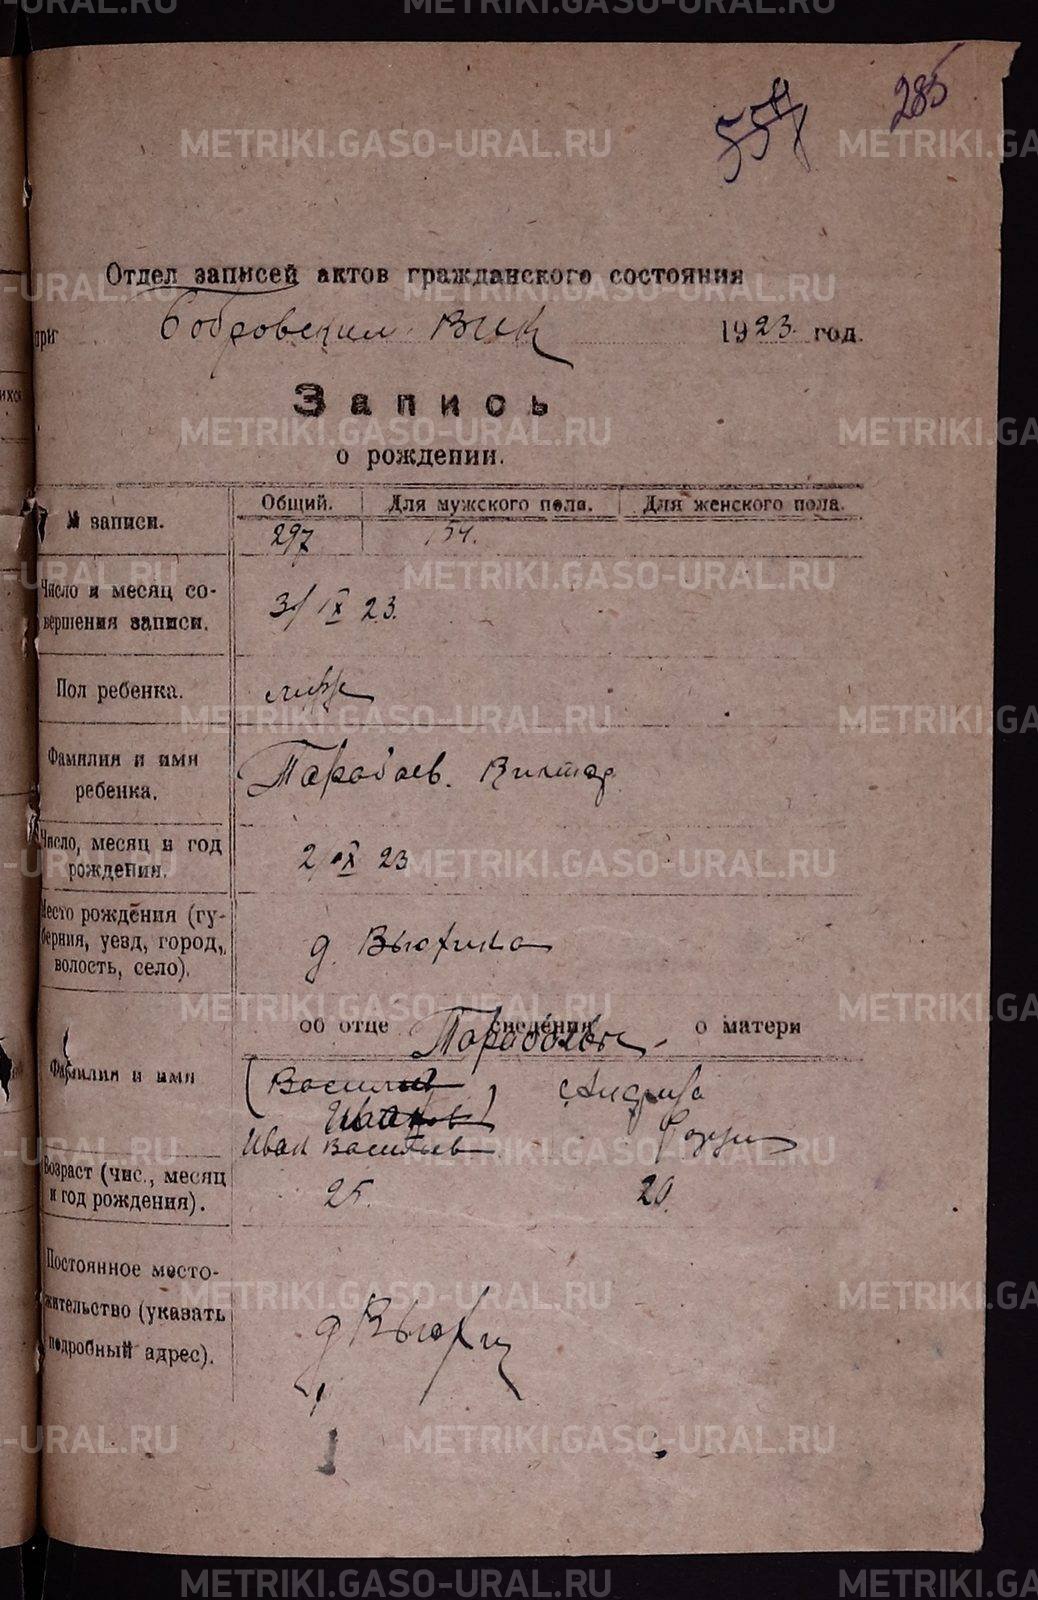 METRIKI.GASO-URAL.RU
285
557
Отдел записей актов гражданского состояния
при Бобровским ВИК 1923 год.
Запись
о рождении.
№ записи.
Общий. Для мужского пола. Для женского пола.
297 154.
Число и месяц совершения записи.
3/IX 23.
Пол ребенка.
муж
Фамилия и имя
ребенка.
Парабаев. Виктор
Число, месяц и год
рождения.
2/IX 23
Место рождения (губерния, уезд, город, волость, село).
д. Вьюхина
об отце сведения о матери
Фамилия и имя
Василий
Иванов
Иван Васильев
Возраст (чис., месяц
и год рождения).
25. 20.
Постоянное местожительство (указать
подробный адрес).
д Вьюхи